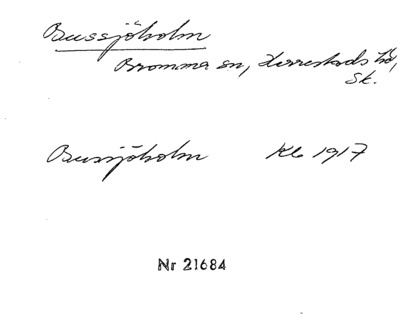 Bussjöholm
Bromma sn, Herrestads hd,
Sk.
Bussjöholm Kb 1917
Nr 21684